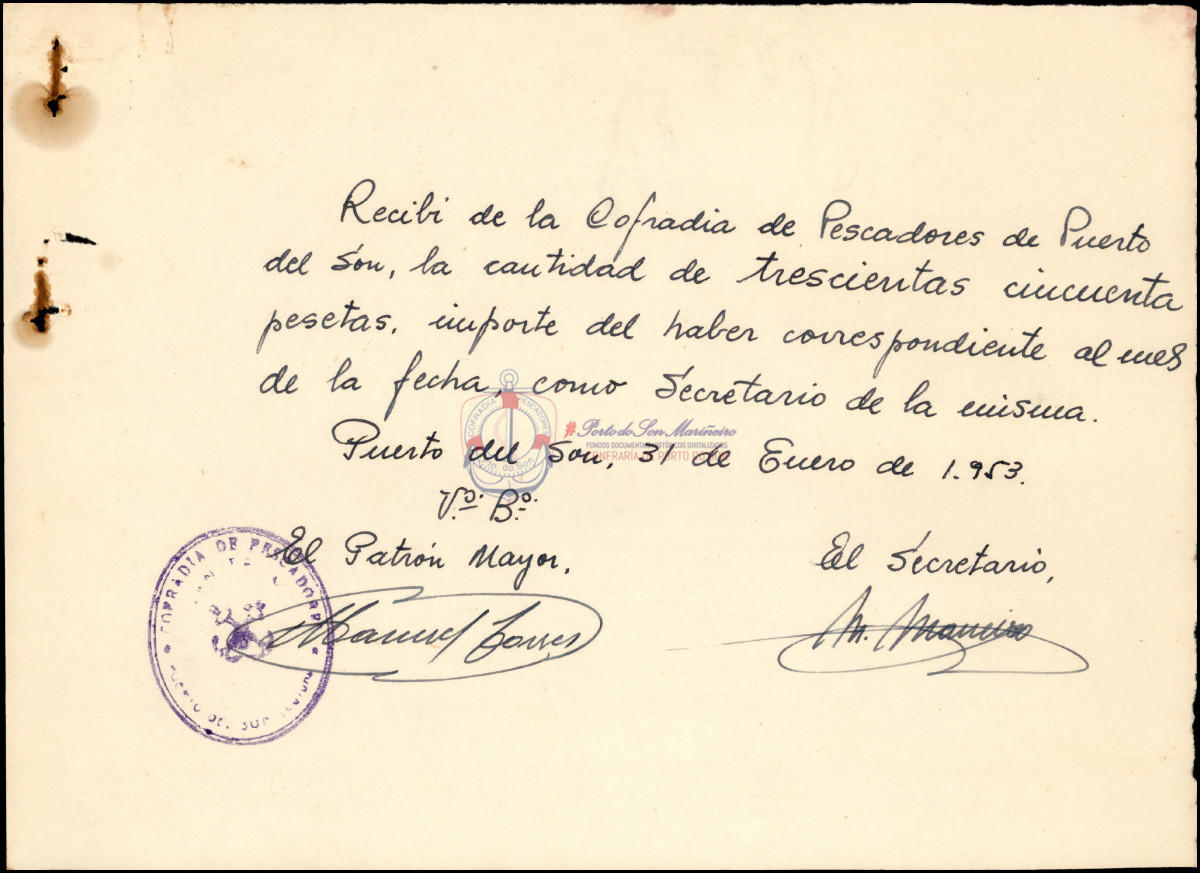 Recibí de la Cofradia de Pescadores de Puerto
del Son, la cantidad de trescientas cincuenta
pesetas, importe del haber correspondiente al mes
de la fecha, como Secretario de la misma.
Puerto del Son, 31 de Enero de 1.953.
V.º B.º
El Patrón Mayor,
El Secretario,
Manuel Torres
M. Maneiro
COFRADIA DE PESCADORES
PUERTO DEL SON
COFRADIA PESCADORES
Pto. do Son
#Porto do Son Mariñeiro
FONDOS DOCUMENTAIS HISTÓRICOS DIXITALIZADOS
CONFRARÍA DE PORTO DO SON